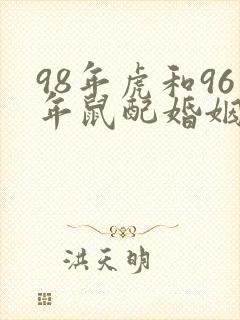 98年虎和96
年鼠配婚姻
洪天明